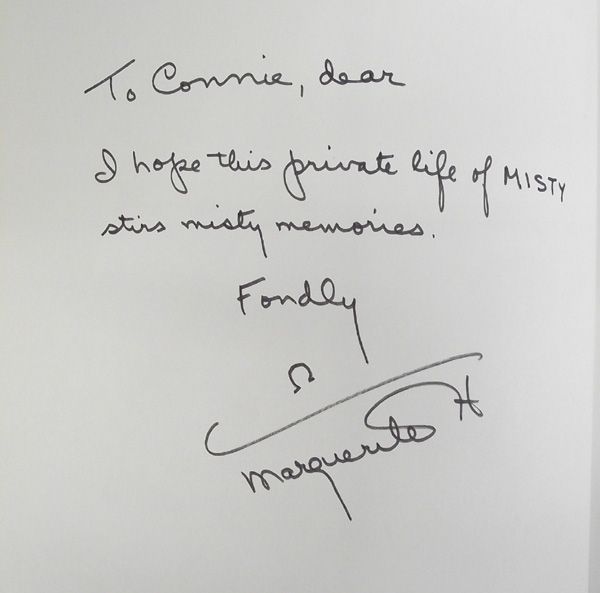 To Connie, dear
I hope this private life of MISTY
stirs misty memories.
Fondly
Marguerite H